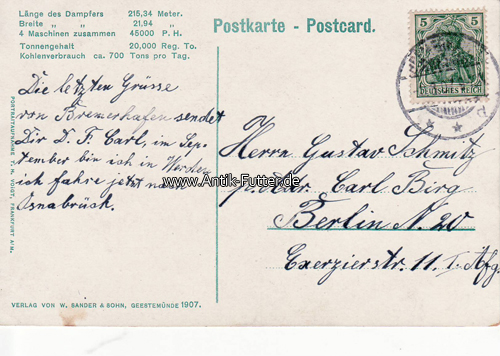 Länge des Dampfers 215,34 Meter.
Breite „ „ 21,94 „
4 Maschinen zusammen 45000 P. H.
Tonnengehalt 20,000 Reg. To.
Kohlenverbrauch ca. 700 Tons pro Tag.
Postkarte - Postcard.
5 5
DEUTSCHES REICH
Die letzten Grüsse
von Bremerhafen sendet
Dir D. F. Carl, im Sep-
tember bin ich in
ich fahre jetzt nach
Osnabrück.
www.Antik-Futter.de
Herrn Gustav Schmitz
p. Adr. Carl Birg
Berlin N. 20
Exerzierstr. 11. I. Afg.
POSTKARTAUFNAHME H. VOGT, FRANKFURT A/M.
VERLAG VON W. SANDER & SOHN, GEESTEMÜNDE 1907.